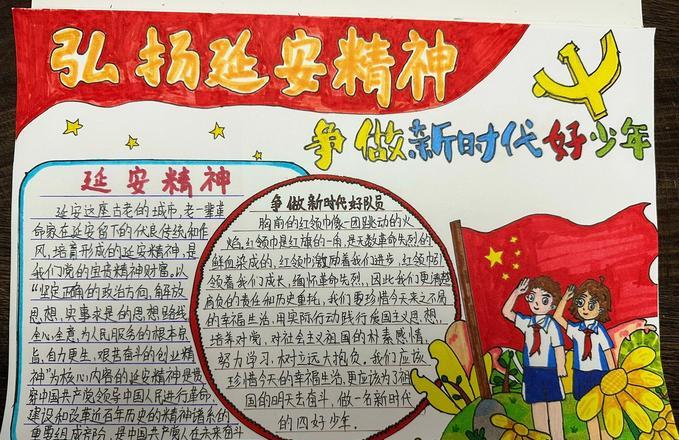 弘扬延安精神
争做新时代好少年
延安精神
延安这座古老的城市,老一辈革
命家在延安留下的优良传统和作
风,培育形成的延安精神,是
我们党的宝贵精神财富,以
“坚定正确的政治方向,解放
思想、实事求是的思想路线
全心全意为人民服务的根本宗
旨,自力更生、艰苦奋斗的创业精
神”为核心内容的延安精神是贯
穿中国共产党领导中国人民进行革命、
建设和改革近百年历史的精神谱系的
重要组成部分,是中国共产党人在未来奋斗
争做新时代好队员
胸前的红领巾像一团跳动的火
焰,红领巾是红旗的一角,是无数革命先烈的
鲜血染成的,红领巾激励着我们进步,红领巾引
领着我们成长,缅怀革命先烈,因此我们更清楚
肩负的责任和历史重托,我们更珍惜今天来之不易
的幸福生活,用实际行动践行爱国主义思想,
培养对党、对社会主义祖国的朴素感情,
努力学习,树立远大抱负,我们应该
珍惜今天的幸福生活,更应该为了祖
国的明天去奋斗,做一名新时代
的四好少年.